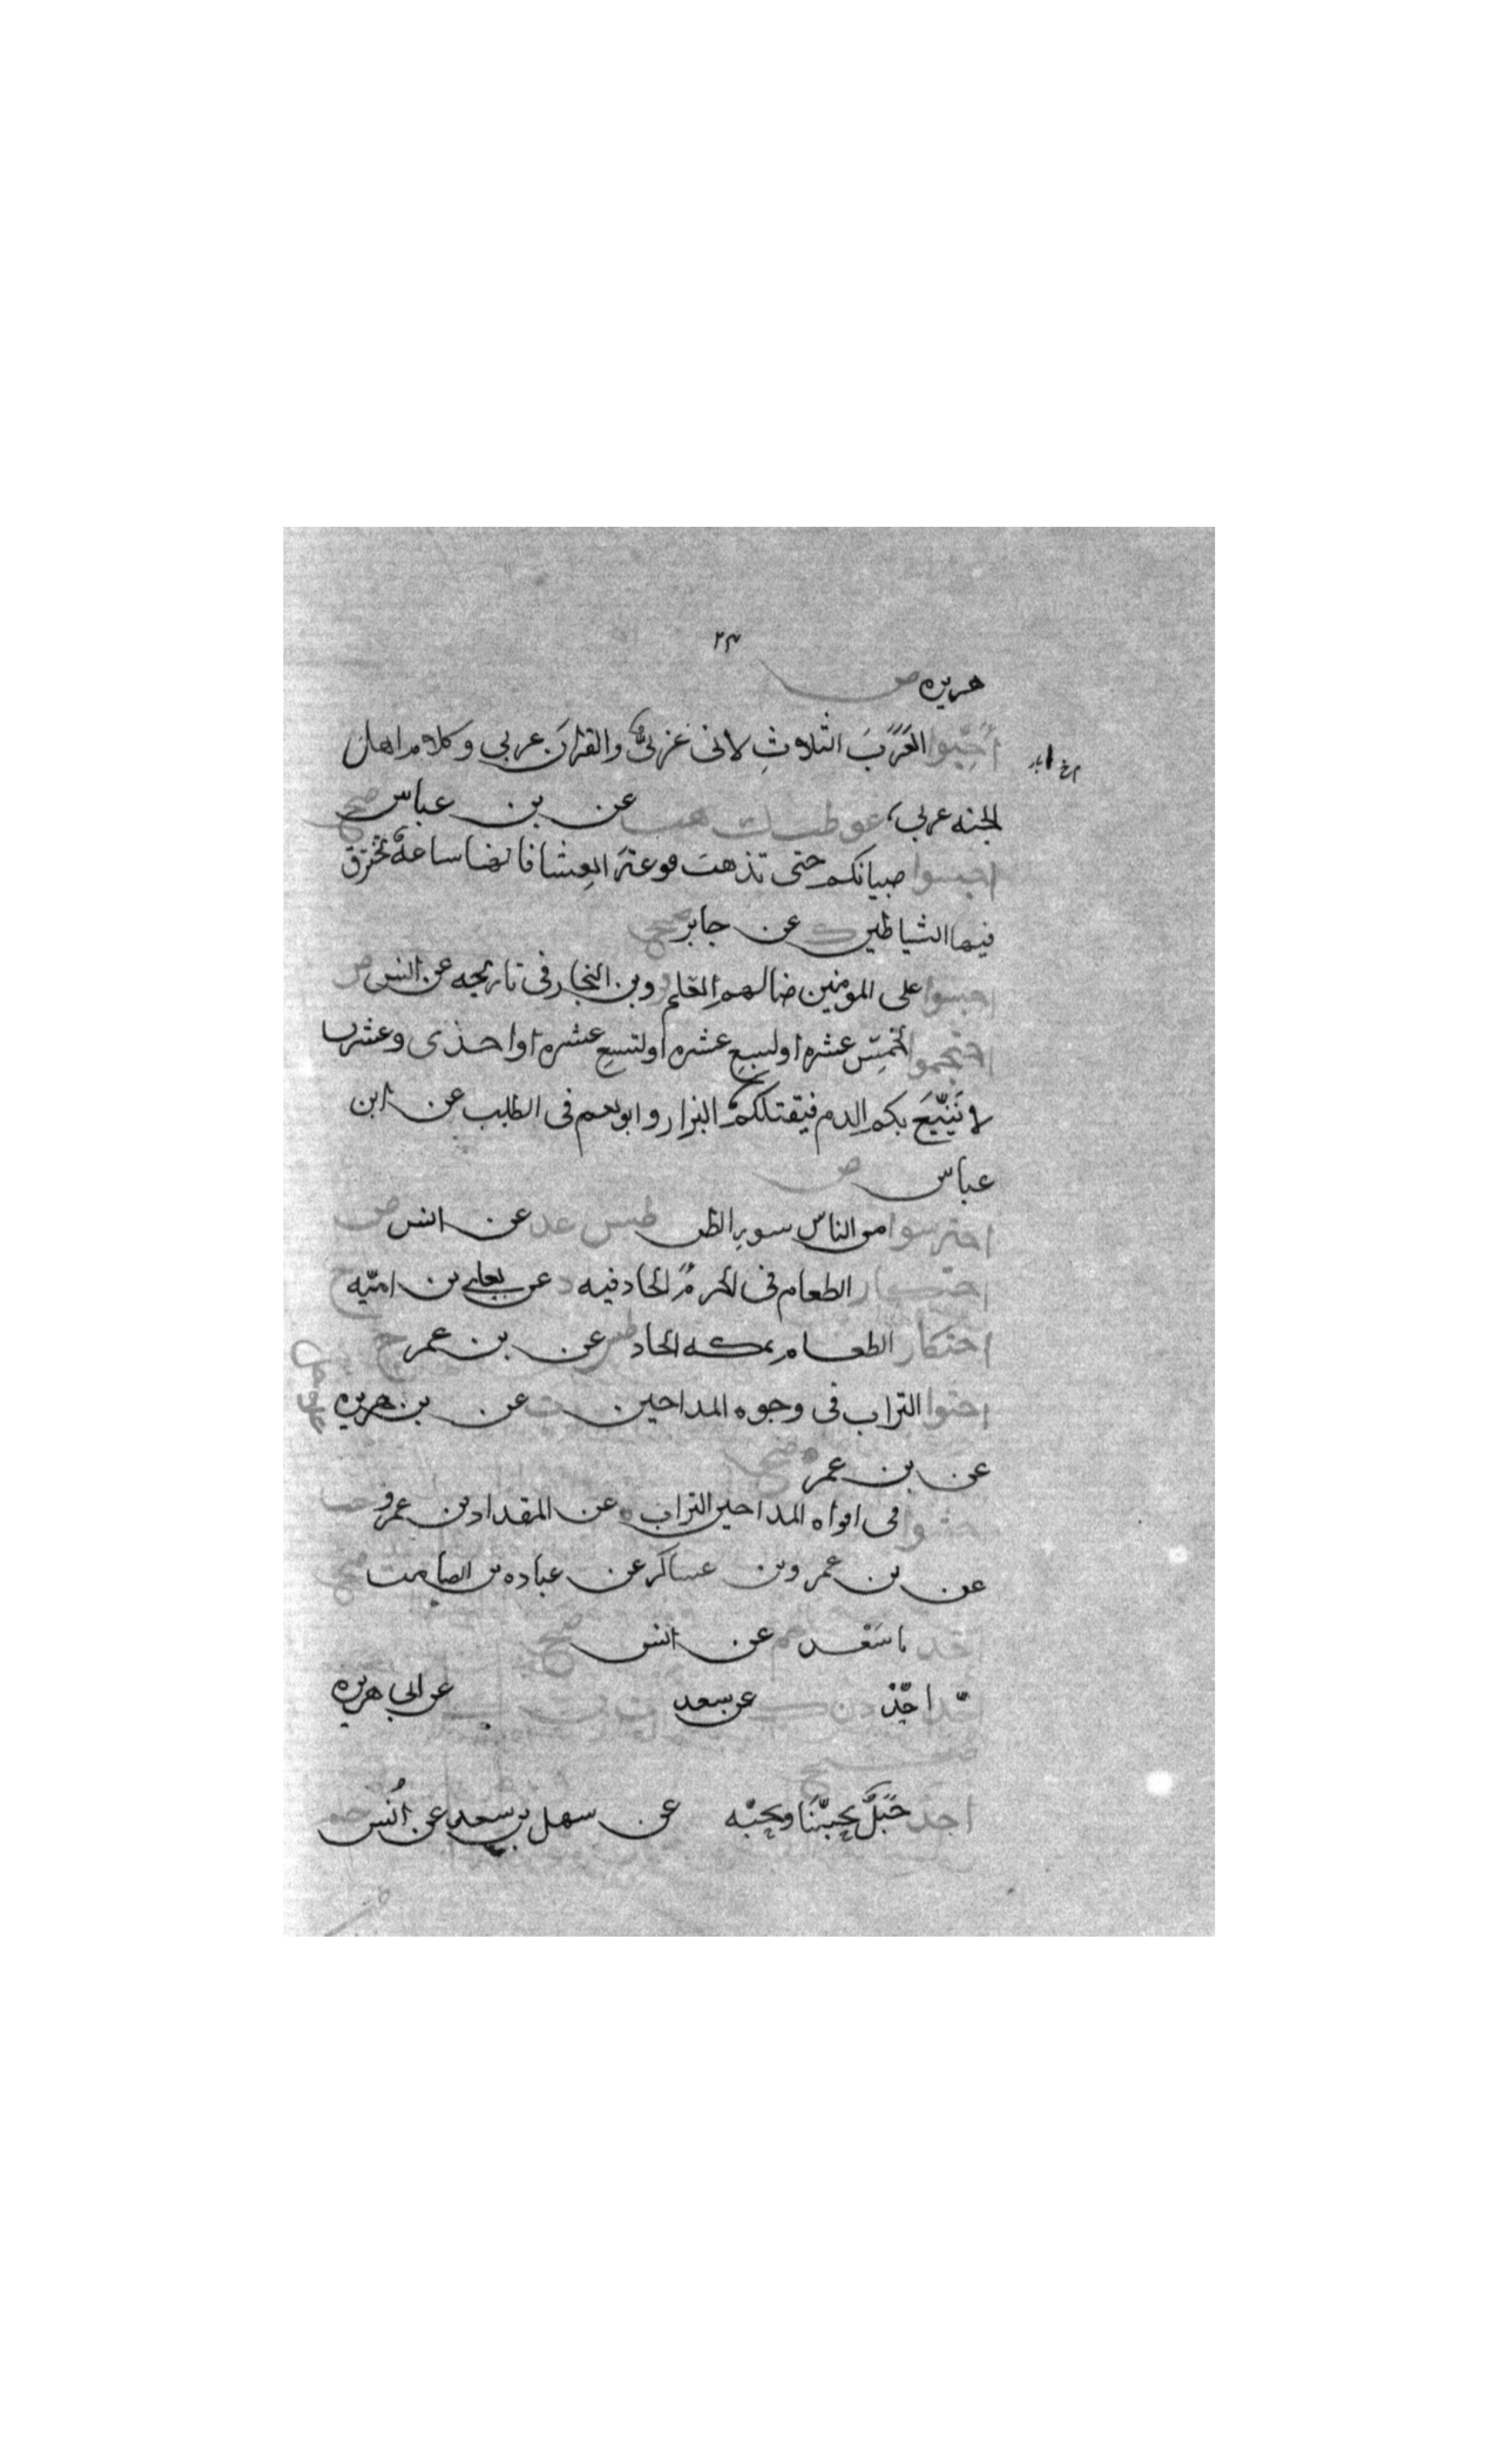 ٢٣
هريره ض
أحبوا العرب الثلاث لانى عربي والقران عربي وكلام اهل
الجنه عربي عق طب ك هب عن بن عباس صح
احبسوا صبيانكم حتى تذهب فوعة العشا فانها ساعة تخترق
فيها الشياطين ك عن جابر صح
احبسوا على المومنين ضالهم العلم وبن النجار فى تاريخه عن انس ض
احتجموا لخمس عشره او لسبع عشره او لتسع عشره او احدى وعشرين
لا يتبيغ بكم الدم فيقتلكم البزار وابو نعيم فى الطب عن ابن
عباس ض
احترسوا من الناس بسو الظن طس عد عن انس ض
احتكار الطعام فى الحرم الحاد فيه د عن يعلى بن اميه ح
احتكار الطعام بمكه الحاد طس عن بن عمر ح
احثوا التراب فى وجوه المداحين ت عن بن هريره
عن بن عمر صح
احثوا فى افواه المداحين التراب ه عن المقداد بن عمرو
عن بن عمر وبن عساكر عن عباده بن الصامت صح
احد يا سعد حم عن انس صح
احد احد د ن ك عن سعد ت ن ك عن ابى هريره
صح
احد جبل يحبنا ونحبه عن سهل بن سعد عن انس